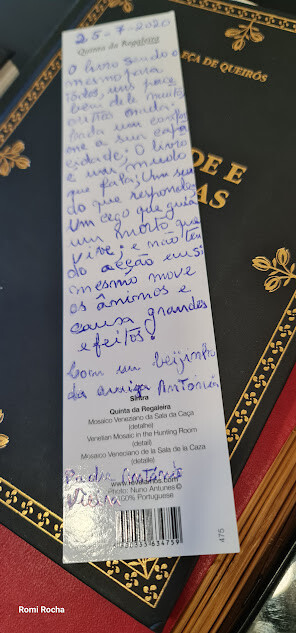 25-7-2020
Quinta da Regaleira
O livro sendo o
mesmo para
todos, uns
bem dele muito,
outros nada:
cada um confor
me a sua capa
cidade; O livro
é um mudo
que fala; Um sur
do que responde;
Um cego que guia
um morto que
vive; e não ten
do acção em si
mesmo move
os ânimos e
causa grandes
efeitos!
Com um beijinho
da amiga Antónia
Sintra
Quinta da Regaleira
Mosaico Veneziano da Sala da Caça
(detalhe)
Venetian Mosaic in the Hunting Room
(detail)
Mosaico Veneciano de la Sala de la Caza
(detalle)
Padre António
Vieira
Photo: Nuno Antunes©
100% Portuguese
634759
475
EÇA DE QUEIRÓS
DE E
AS
Romi Rocha